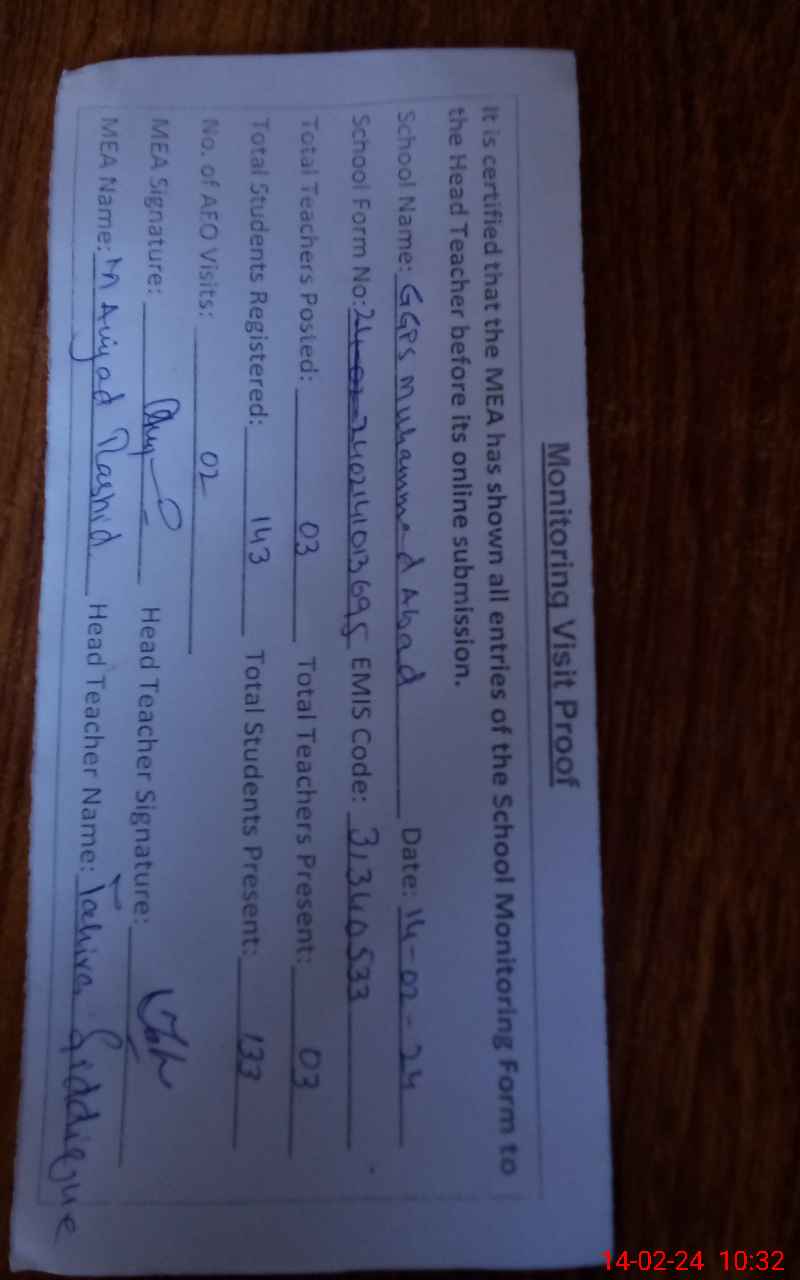 Monitoring Visit Proof
It is certified that the MEA has shown all entries of the School Monitoring Form to
the Head Teacher before its online submission.
School Name: GGPS Muhammad Ahad Date: 14-02-24
School Form No: 7402141013695 EMIS Code: 31340533
Total Teachers Posted: 03 Total Teachers Present: 03
Total Students Registered: 143 Total Students Present: 133
No. of AEO Visits: 02
MEA Signature: Head Teacher Signature:
MEA Name: M Rashid Head Teacher Name: Tahira Siddique
14-02-24 10:32